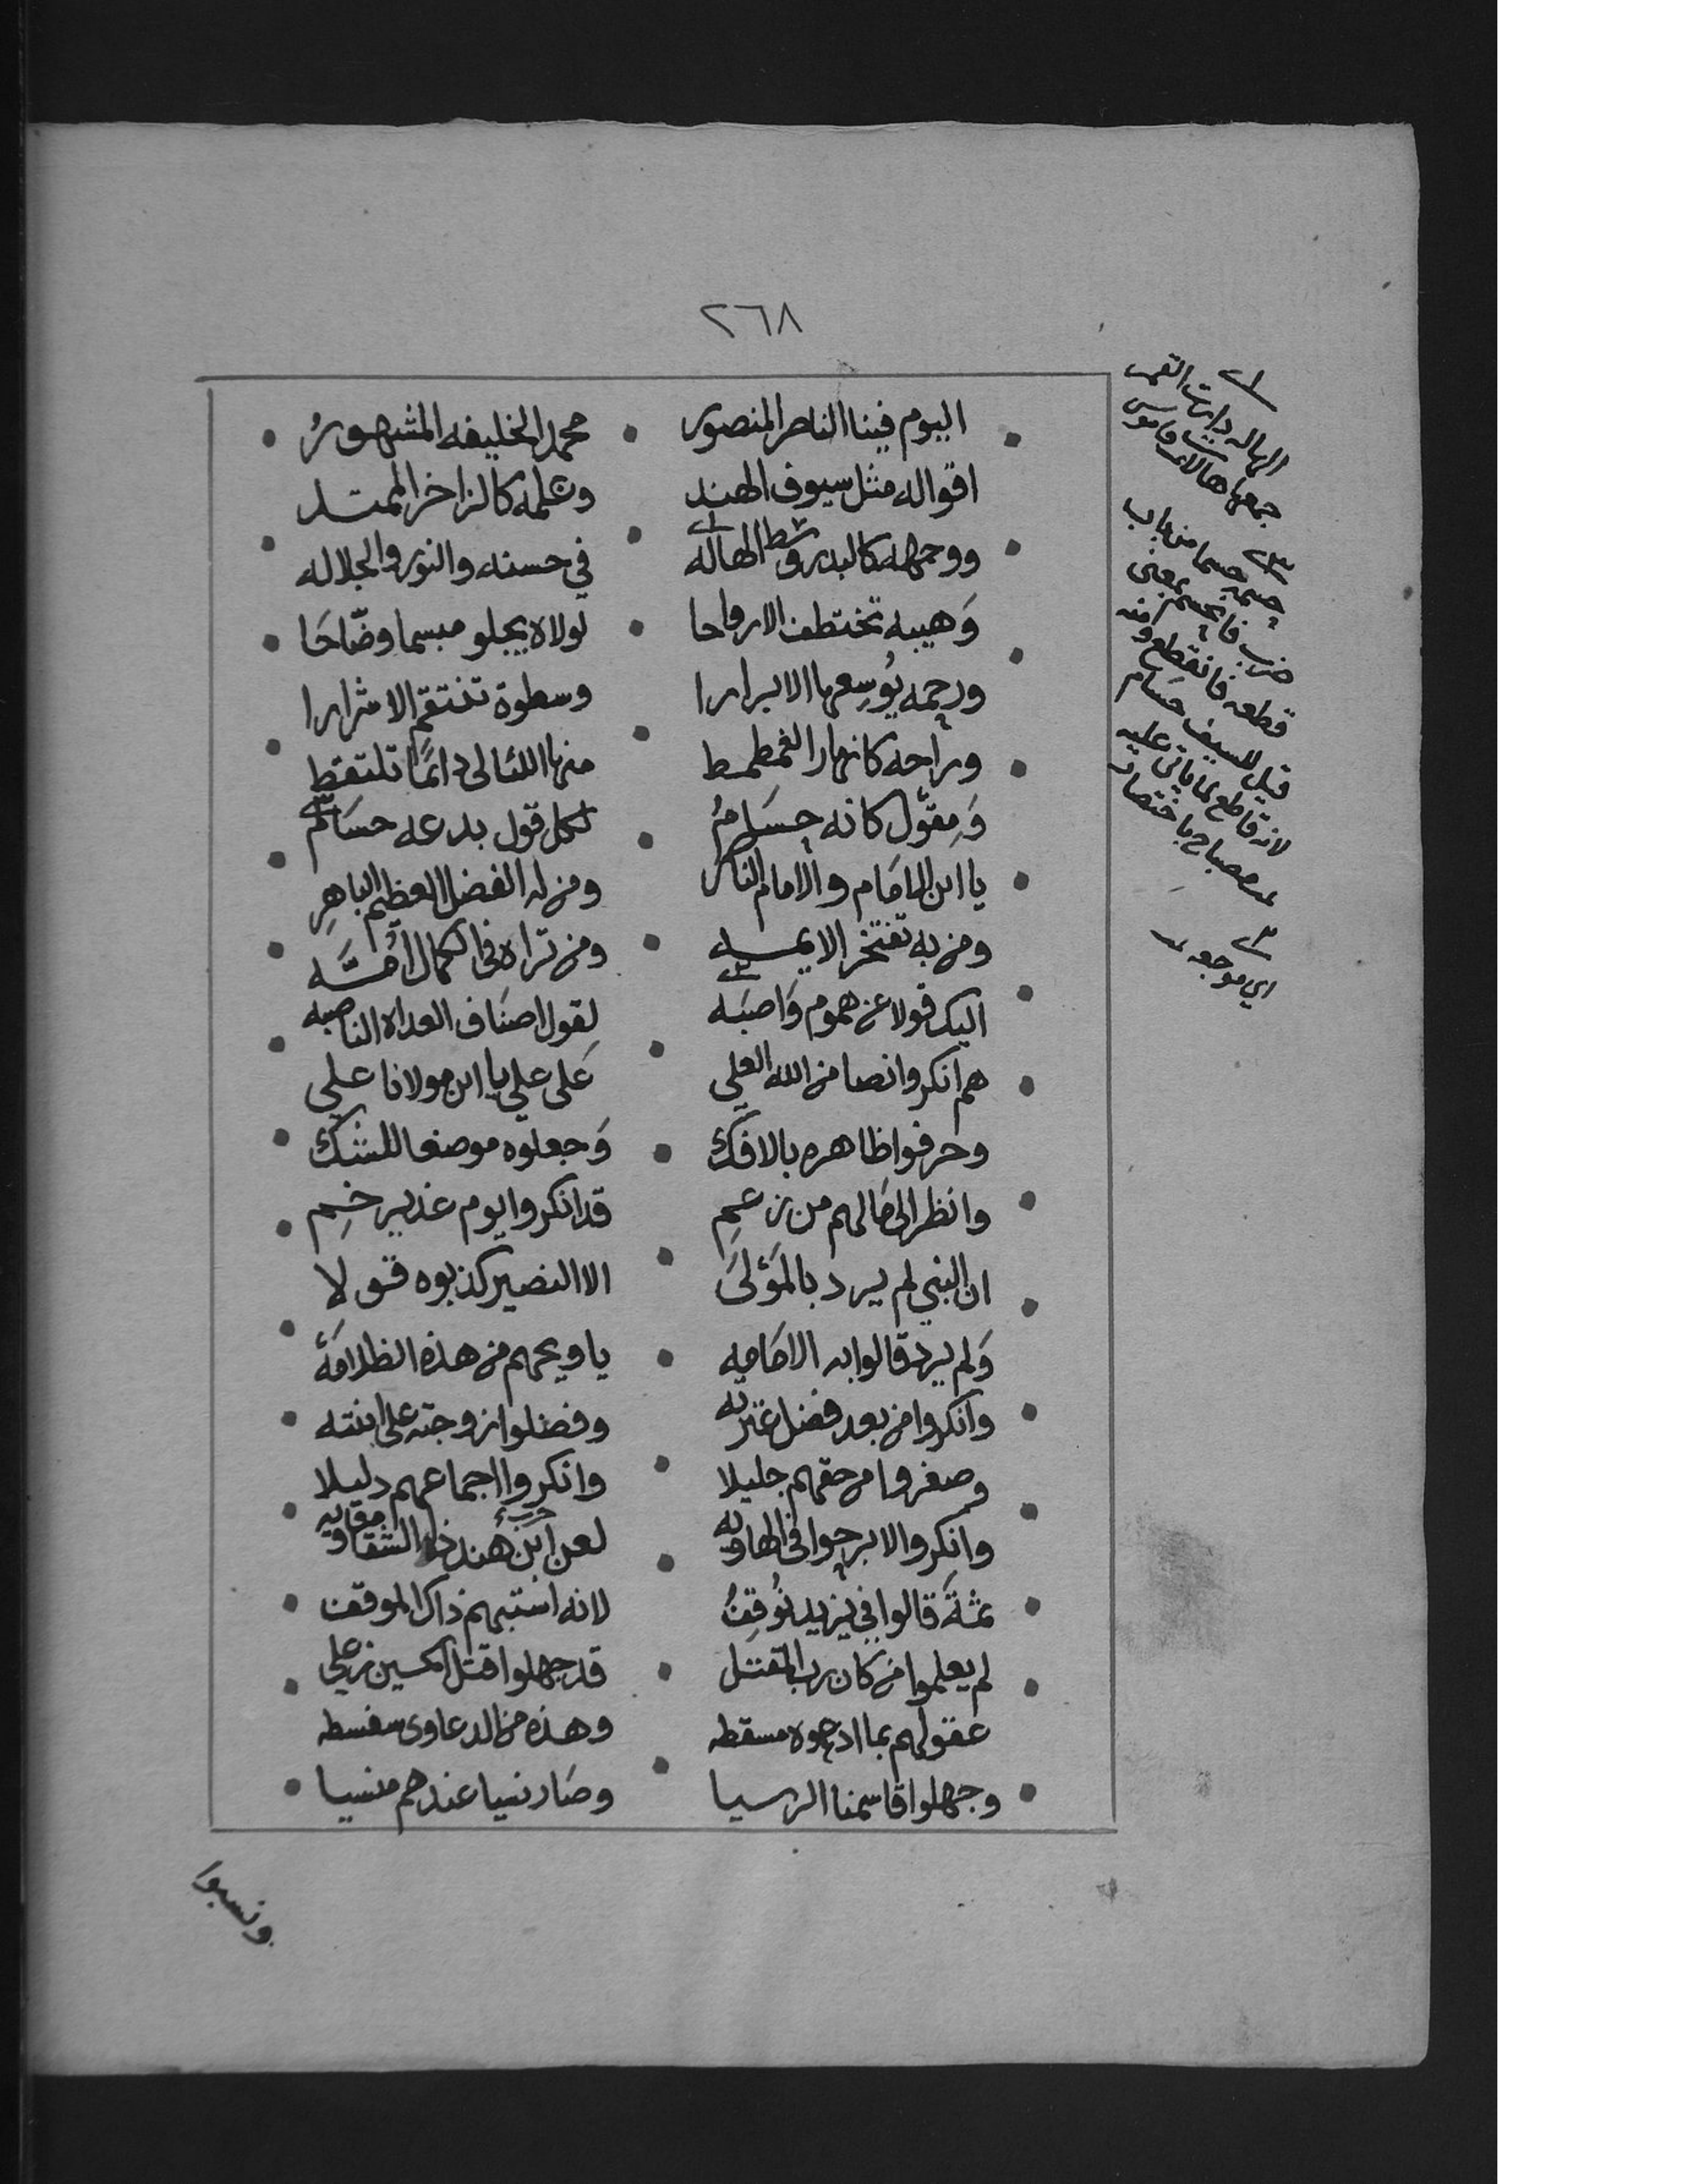 ٢٦٨
اليوم فينا الناصر المنصور • محمد الخليفه المشهورُ
اقواله مثل سيوف الهند وعلمه كالزاخر الممتد
ووجهه كالبدر وسط الهاله في حسنه والنور والجلاله
وَهيبه تختطف الارواحا لولاه يجلو مبسما وضّاحَا
ورحمه يُوسِعها الابرارا وسطوة تنتقم الاشرارا
وراحه كانهار الغمطمط منها اللئالى دائمًا تلتقط
وَمِقوَل كانه حسَامُ لكل قول بدعه حسَام
يا ابن الامَام والامام الناصر ومن له الفضل العظيم الباهِرِ
ومن به تفتخر الايمه ومن تراه في الكمال اُمَّه
اليك قولا عن هموم وَاصبَه لِقول اصنَاف العداه الناصبه
هم انكروا نصا من الله العلي عَلى علي يا ابن مولانا علي
وحرفوا ظاهره بالافك وَجعلوه موضعا للشك
وانظر الى مَالهم من زعمِ قد انكروا يوم غدير خمِ
ان النبي لم يرد بالمَوْلىَ الا النصير كذبوه قولا
وَلم يرد قالوا به الامَامه يا ويحهم من هذه الظلامَهْ
وانكروا من بعد فضل عترته وفضلوا زوجته على ابنته
وصغروا من حقهم جليلا وانكروا اجماعهم دليلا
وانكروا لا برحوا في الهاويه لعن ابن هند ذي الشقا معاويه
حرب
ثمةَ قالوا في يزيد نُوقِفُ لانه اشتبهم ذاك الموقف
لم يعلموا من كان رب المقتل قد جهلوا قتل الحسين بن علي
عقولهم بما ادعوه مسقطه وهذه من الدعاوى سفسطه
وجهلوا قاسمنا الرسيا وصَار نسيا عندهم منسيا
ونسبوا
الهاله دايرت القمر
جمعها هالات قاموس
حسمه حسما من باب
ضرب فانحسم بمعنى
قطعه فانقطع ومنه
قيل للسيف حسام
لانه قاطع لما ياتي عليه
مصباح باختصار
اي موجعه